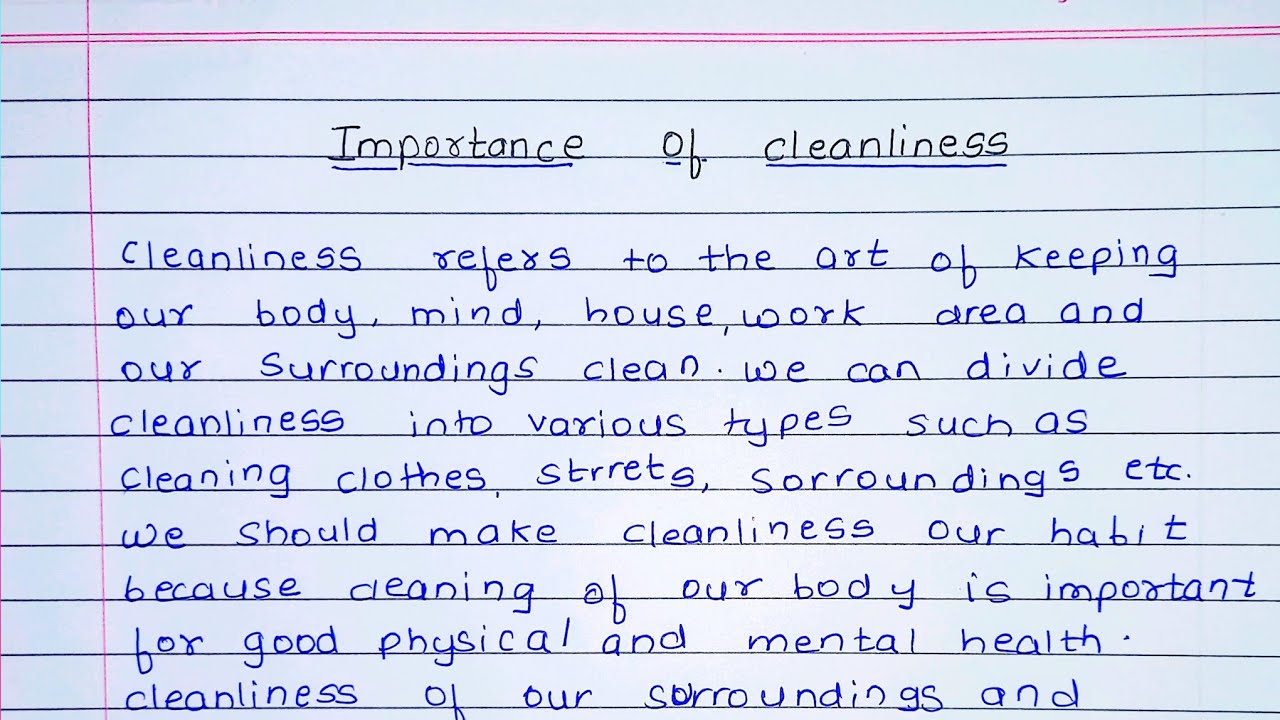 Importance of cleanliness
Cleanliness refers to the art of keeping
our body, mind, house, work area and
our surroundings clean. we can divide
cleanliness into various types such as
cleaning clothes, strrets, sorroundings etc.
we should make cleanliness our habit
because cleaning of our body is important
for good physical and mental health.
cleanliness of our sorroundings and